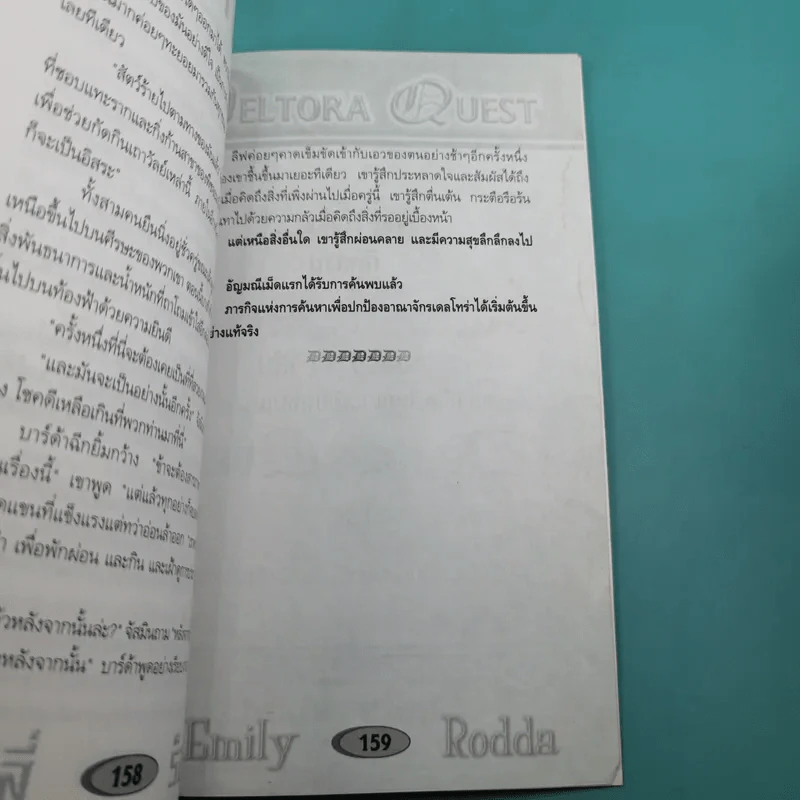 เลยทีเดียว
"สัตว์ร้ายไปตามทางของมัน
ที่ชอบแทะรากและกิ่งก้านสาขาของ
เพื่อช่วยกัดกินเถาวัลย์เหล่านี้
ก็จะเป็นอิสระ"
ทั้งสามคนยืนนิ่งอยู่ชั่วครู่
เหนือขึ้นไปบนศีรษะของพวกเขา
สิ่งพันธนาการและน้ำหนักที่ถาโถม
ไปบนท้องฟ้าด้วยความยินดี
"ครั้งหนึ่งที่นี่จะต้องเคยเป็นที่ที่
"และมันจะเป็นอย่างนั้นอีกครั้ง"
โชคดีเหลือเกินที่พวกท่านมาที่นี่"
บาร์ด้าฉีกยิ้มกว้าง "ข้าจะต้อง
เรื่องนี้" เขาพูด "แต่แล้วทุกอย่างก็
แขนที่แข็งแรงแต่ทว่าอ่อนล้าออก
เพื่อพักผ่อน และกิน และเฝ้าดู
หลังจากนั้นล่ะ?" จัสมินถาม
หลังจากนั้น" บาร์ด้าพูดอย่าง
158
ELTORA QUEST
ลิฟค่อยๆคาดเข็มขัดเข้ากับเอวของตนอย่างช้าๆอีกครั้งหนึ่ง
องเขาชื้นขึ้นมาเยอะทีเดียว เขารู้สึกประหลาดใจและสัมผัสได้ถึง
เมื่อคิดถึงสิ่งที่เพิ่งผ่านไปเมื่อครู่นี้ เขารู้สึกตื่นเต้น กระตือรือร้น
เทาไปด้วยความกลัวเมื่อคิดถึงสิ่งที่รออยู่เบื้องหน้า
แต่เหนือสิ่งอื่นใด เขารู้สึกผ่อนคลาย และมีความสุขลึกลึกลงไป
อัญมณีเม็ดแรกได้รับการค้นพบแล้ว
ภารกิจแห่งการค้นหาเพื่อปกป้องอาณาจักรเดลโทร่าได้เริ่มต้นขึ้น
ย่างแท้จริง
DDDDDDD
Emily 159 Rodda